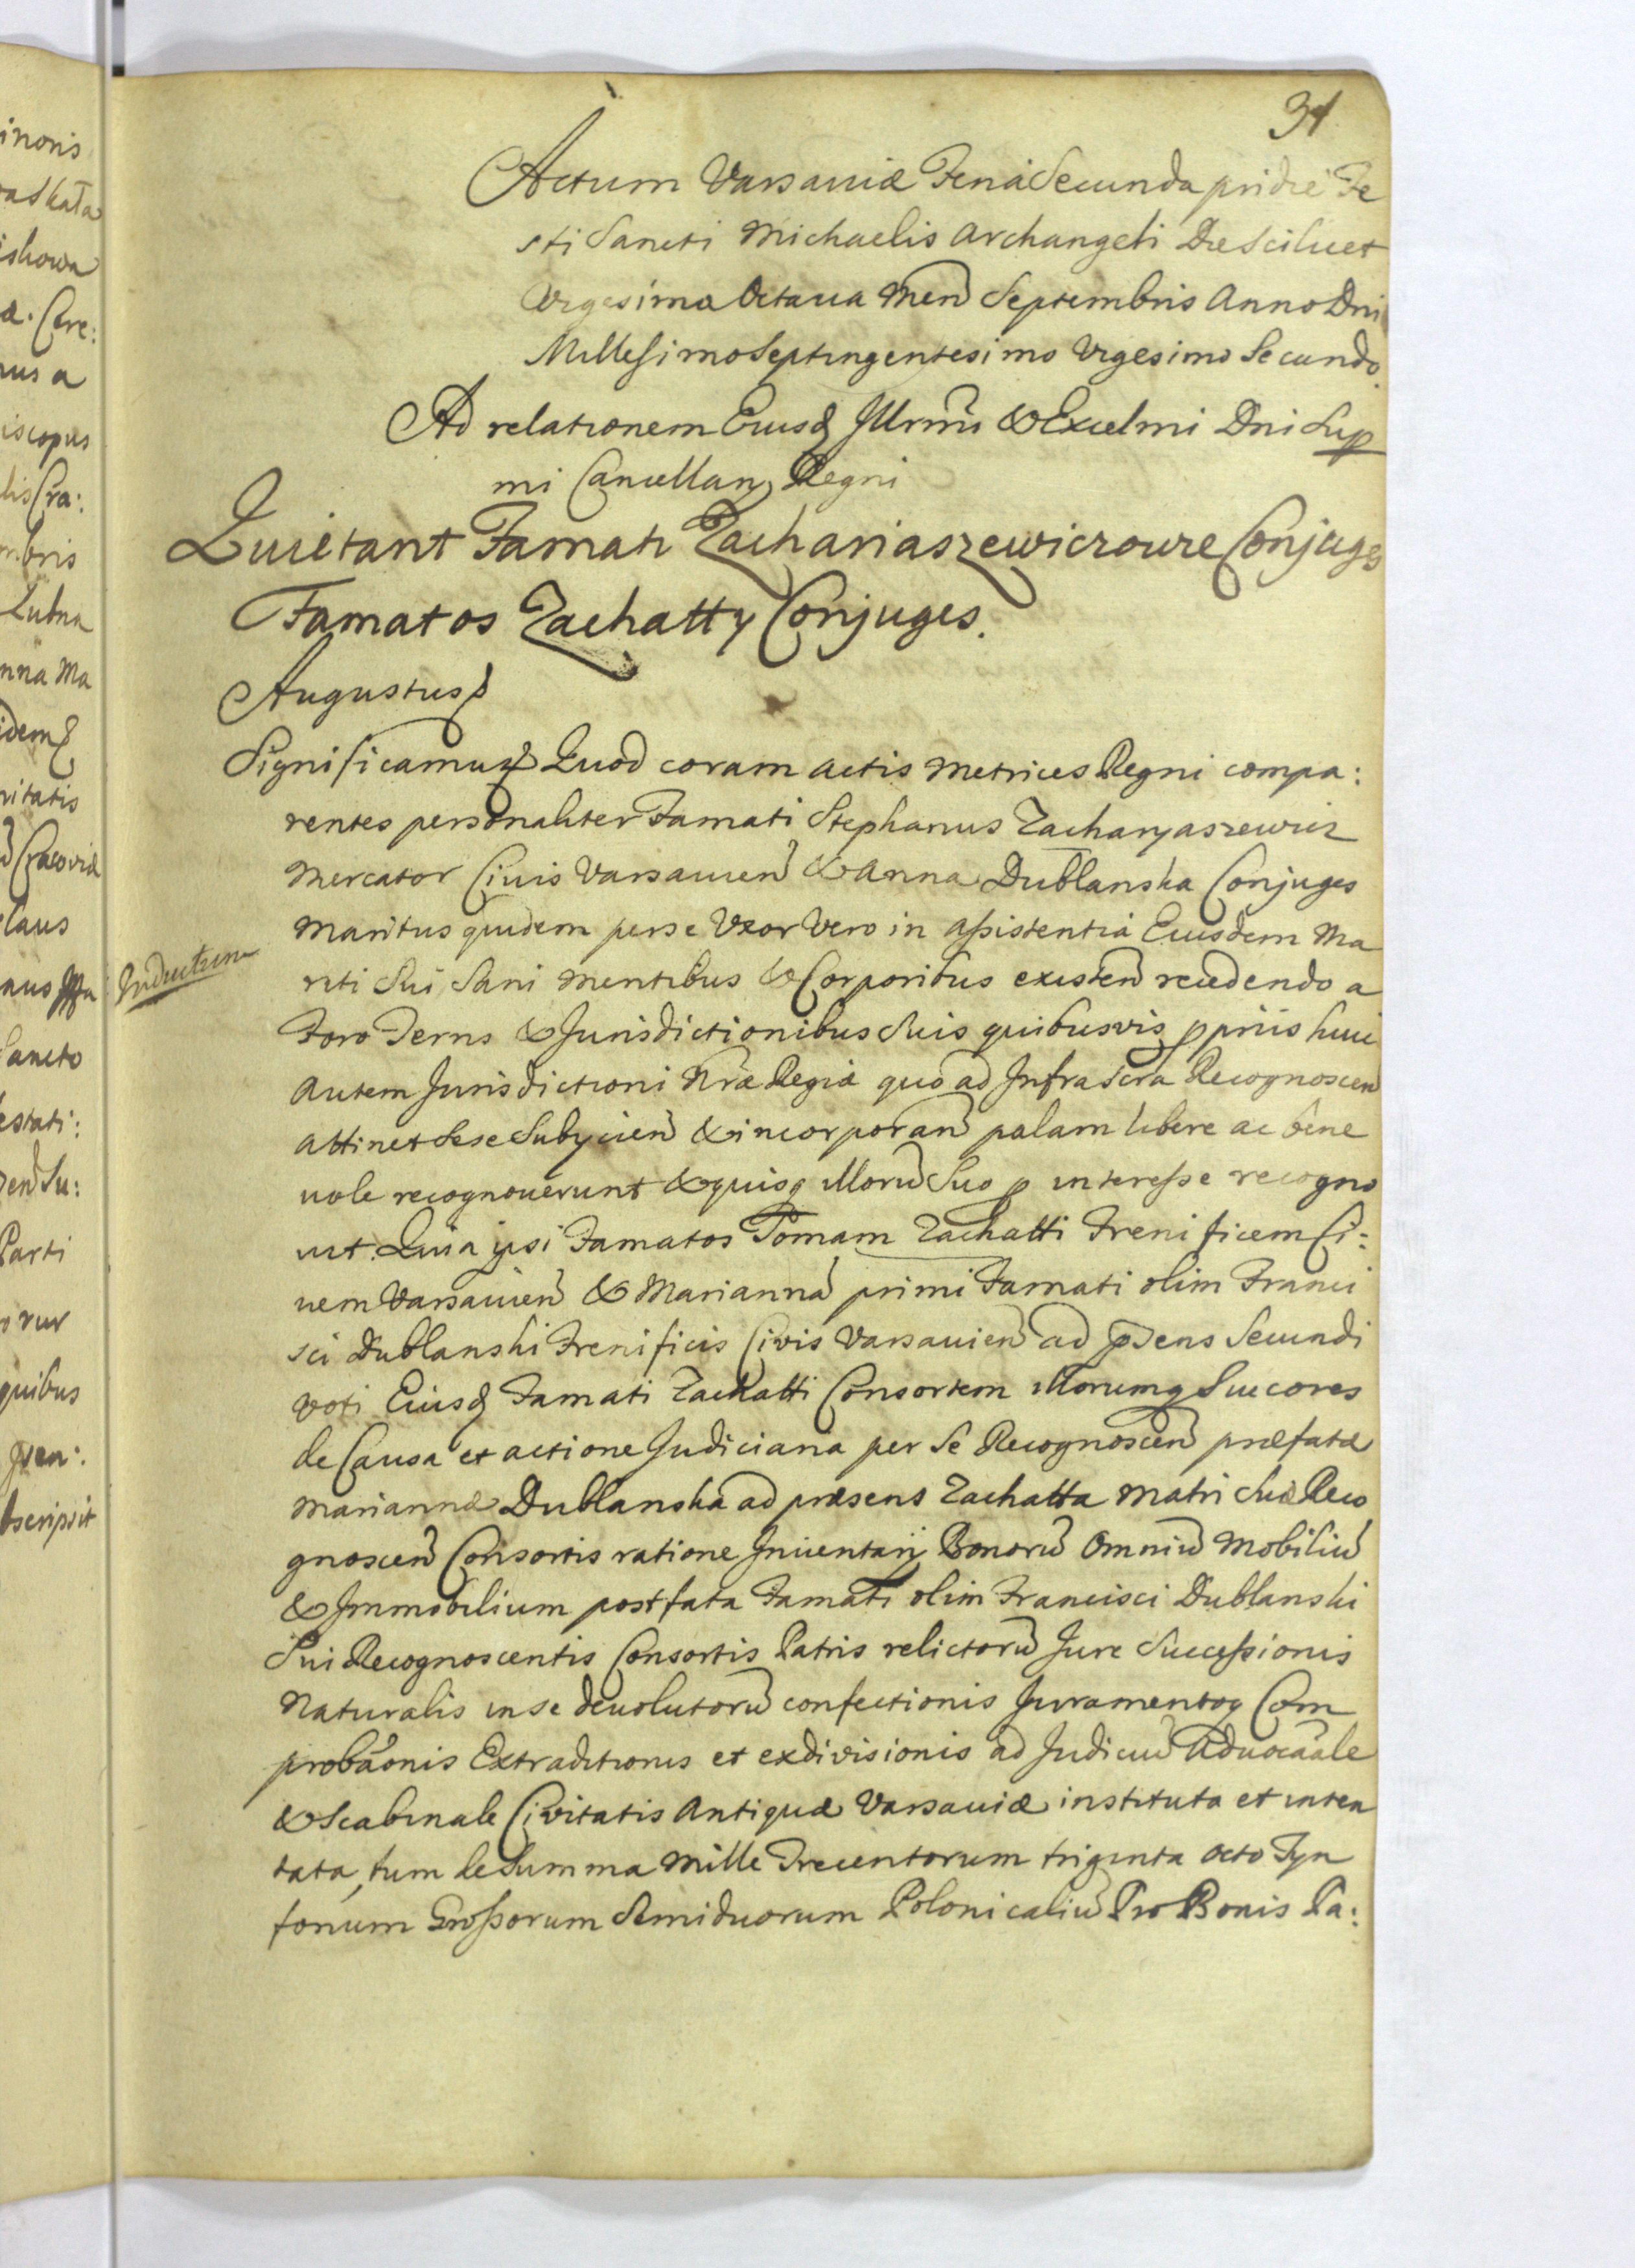 31
Actum Varsaviæ Feria Secunda pridie Fe
sti Sancti Michaelis Archangeli Die Scilicet
Vigesima Octava Men Septembris Anno Dni
Millesimo Septingentesimo Vigesimo Secundo.
Ad relationem Eiusd Illrmi & Excelmi Dni Sup
mi Cancellarij Regni
Quietant Famati Zachariaszewiczowie Conjuges
Famatos Zachatty Conjuges.
Augustus
Significamus Quod coram actis Metrices Regni compa:
rentes personaliter Famati Stephanus Zacharyaszewicz
Mercator Civis Varsavien & Anna Dublanska Conjuges
Maritus quidem per se Uxor Vero in assistentia Eiusdem Ma
riti Sui Sani Mentibus & Corporibus existen recedendo a
Foro Terris & Jurisdictionibus Suis quibusvis ppriis huic
autem Jurisdictioni Nræ Regiæ quo ad Infra Scra Recognoscen
attinet Sese Subijcien & incorporan palam libere ac bene
vole recognoverunt & quisq illorum Suo p interesse recogno
vit. Quia ipsi Famatos Tomam Zachatti Frenificem Ci:
vem Varsavien & Marianna primi Famati olim Franci
sci Dublanski Frenificis Civis Varsavien ad psens Secundi
voti Eiusd Famati Zachatti Consortem illorumq Succores
de Causa et actione Judiciaria per Se Recognoscen præfatæ
Mariannæ Dublanska ad præsens Zachatta Matri Suæ Reco
gnoscen Consortis ratione Inventarij Bonoru Omniu Mobiliu
& Immobilium post fata Famati olim Francisci Dublanski
Sui Recognoscentis Consortis Patris relictoru Jure Successionis
Naturalis in se devolutoru confectionis Juramentoq Com
probaonis Extraditionis et exdivisionis ad Judiciu Advocaale
& Scabinale Civitatis Antiquæ Varsaviæ instituta et inten
tata, tum de Summa Mille Trecentorum triginta octo Tyn
forum Grossorum Semiduorum Polonicaliu Pro Bonis Pa:
Inductum